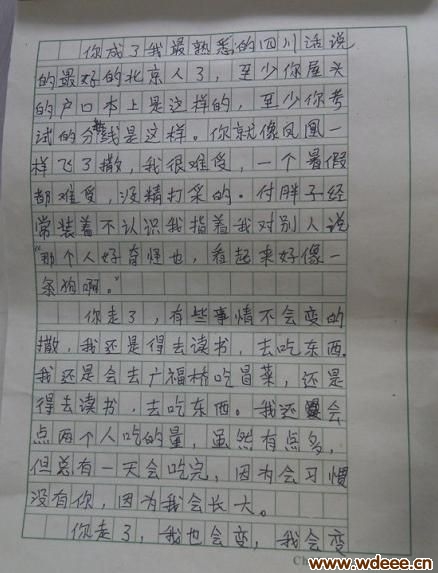 你成了我最熟悉的四川话说
的最好的北京人了，至少你屋头
的户口本上是这样的，至少你考
试的分数线是这样。你就像凤凰一
样飞了撒，我很难受，一个暑假
都难受，没精打采的。付胖子经
常装着不认识我指着我对别人说
“那个人好奇怪也，看起来好像一
条狗啊。”
你走了，有些事情不会变的
撒，我还是得去读书，去吃东西。
我还是会去广福桥吃冒菜，还是
得去读书，去吃东西。我还会
点两个人吃的量，虽然有点多，
但总有一天会吃完，因为会习惯
没有你，因为我会长大。
你走了，我也会变，我会变
Ch
www.wdeee.cn